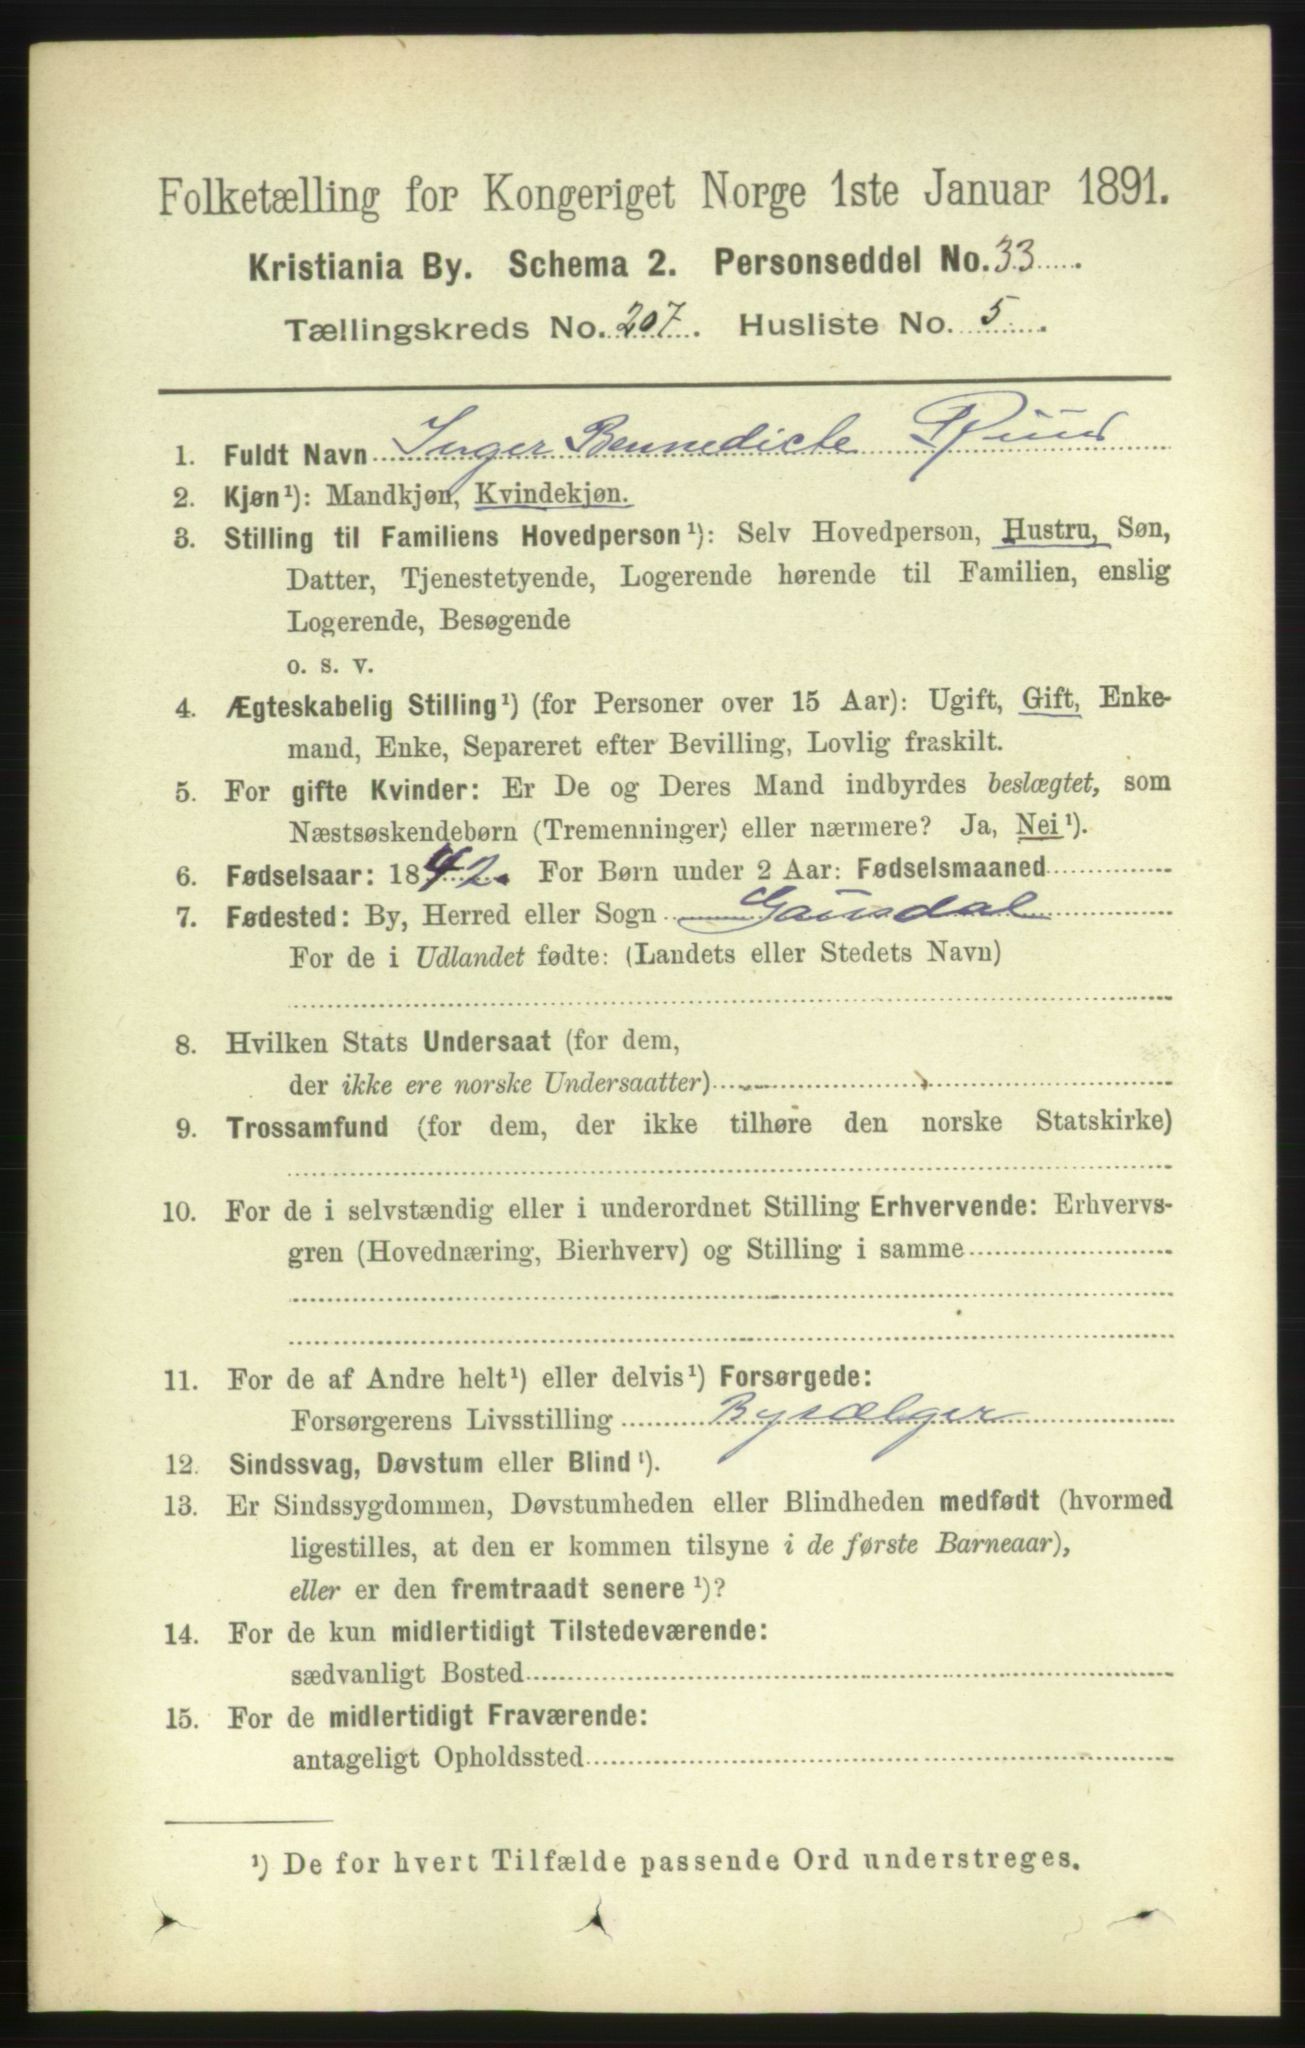 Folketælling for Kongeriget Norge 1ste Januar 1891.
Kristiania By. Schema 2. Personseddel No. 33.
Tællingskreds No. 207. Husliste No. 5.
1. Fuldt Navn Inger Bennedicte Ruud
2. Kjøn¹): Mandkjøn, Kvindekjøn.
3. Stilling til Familiens Hovedperson¹): Selv Hovedperson, Hustru, Søn,
Datter, Tjenestetyende, Logerende hørende til Familien, enslig
Logerende, Besøgende
o. s. v.
4. Ægteskabelig Stilling¹) (for Personer over 15 Aar): Ugift, Gift, Enke-
mand, Enke, Separeret efter Bevilling, Lovlig fraskilt.
5. For gifte Kvinder: Er De og Deres Mand indbyrdes beslægtet, som
Næstsøskendebørn (Tremenninger) eller nærmere? Ja, Nei¹).
6. Fødselsaar: 1842. For Børn under 2 Aar: Fødselsmaaned
7. Fødested: By, Herred eller Sogn Gausdal
For de i Udlandet fødte: (Landets eller Stedets Navn)
8. Hvilken Stats Undersaat (for dem,
der ikke ere norske Undersaatter)
9. Trossamfund (for dem, der ikke tilhøre den norske Statskirke)
10. For de i selvstændig eller i underordnet Stilling Erhvervende: Erhvervs-
gren (Hovednæring, Bierhverv) og Stilling i samme
11. For de af Andre helt¹) eller delvis¹) Forsørgede:
Forsørgerens Livsstilling Bysælger
12. Sindssvag, Døvstum eller Blind¹).
13. Er Sindssygdommen, Døvstumheden eller Blindheden medfødt (hvormed
ligestilles, at den er kommen tilsyne i de første Barneaar),
eller er den fremtraadt senere¹)?
14. For de kun midlertidigt Tilstedeværende:
sædvanligt Bosted
15. For de midlertidigt Fraværende:
antageligt Opholdssted
¹) De for hvert Tilfælde passende Ord understreges.